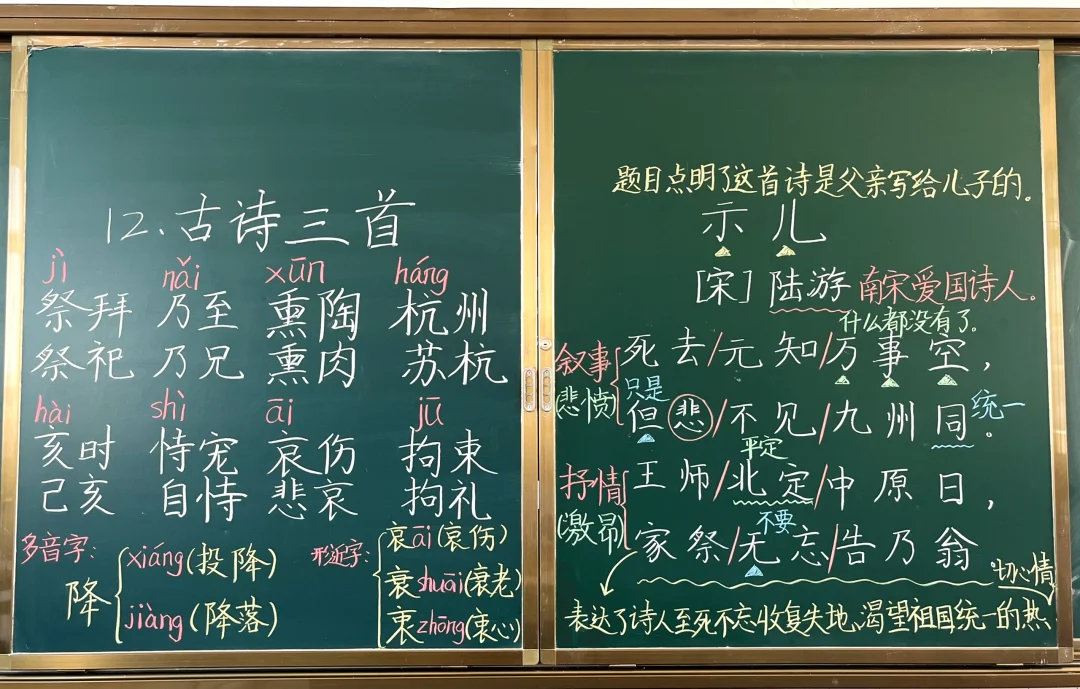 12.古诗三首
jì nǎi xūn háng
祭拜 乃至 熏陶 杭州
祭祀 乃兄 熏肉 苏杭
hài shì āi jū
亥时 恃宠 哀伤 拘束
己亥 自恃 悲哀 拘礼
多音字:
降
xiáng(投降)
jiàng(降落)
形近字:
哀āi(哀伤)
衰shuāi(衰老)
衷zhōng(衷心)
题目点明了这首诗是父亲写给儿子的。
示儿
[宋]陆游 南宋爱国诗人。
什么都没有了。
叙事
(悲愤)
死去/元知/万事空,
只是
但悲/不见/九州同。
统一
平定
抒情
(激昂)
王师/北定/中原日,
不要
家祭/无忘/告乃翁。
表达了诗人至死不忘收复失地、渴望祖国统一的热
切心情